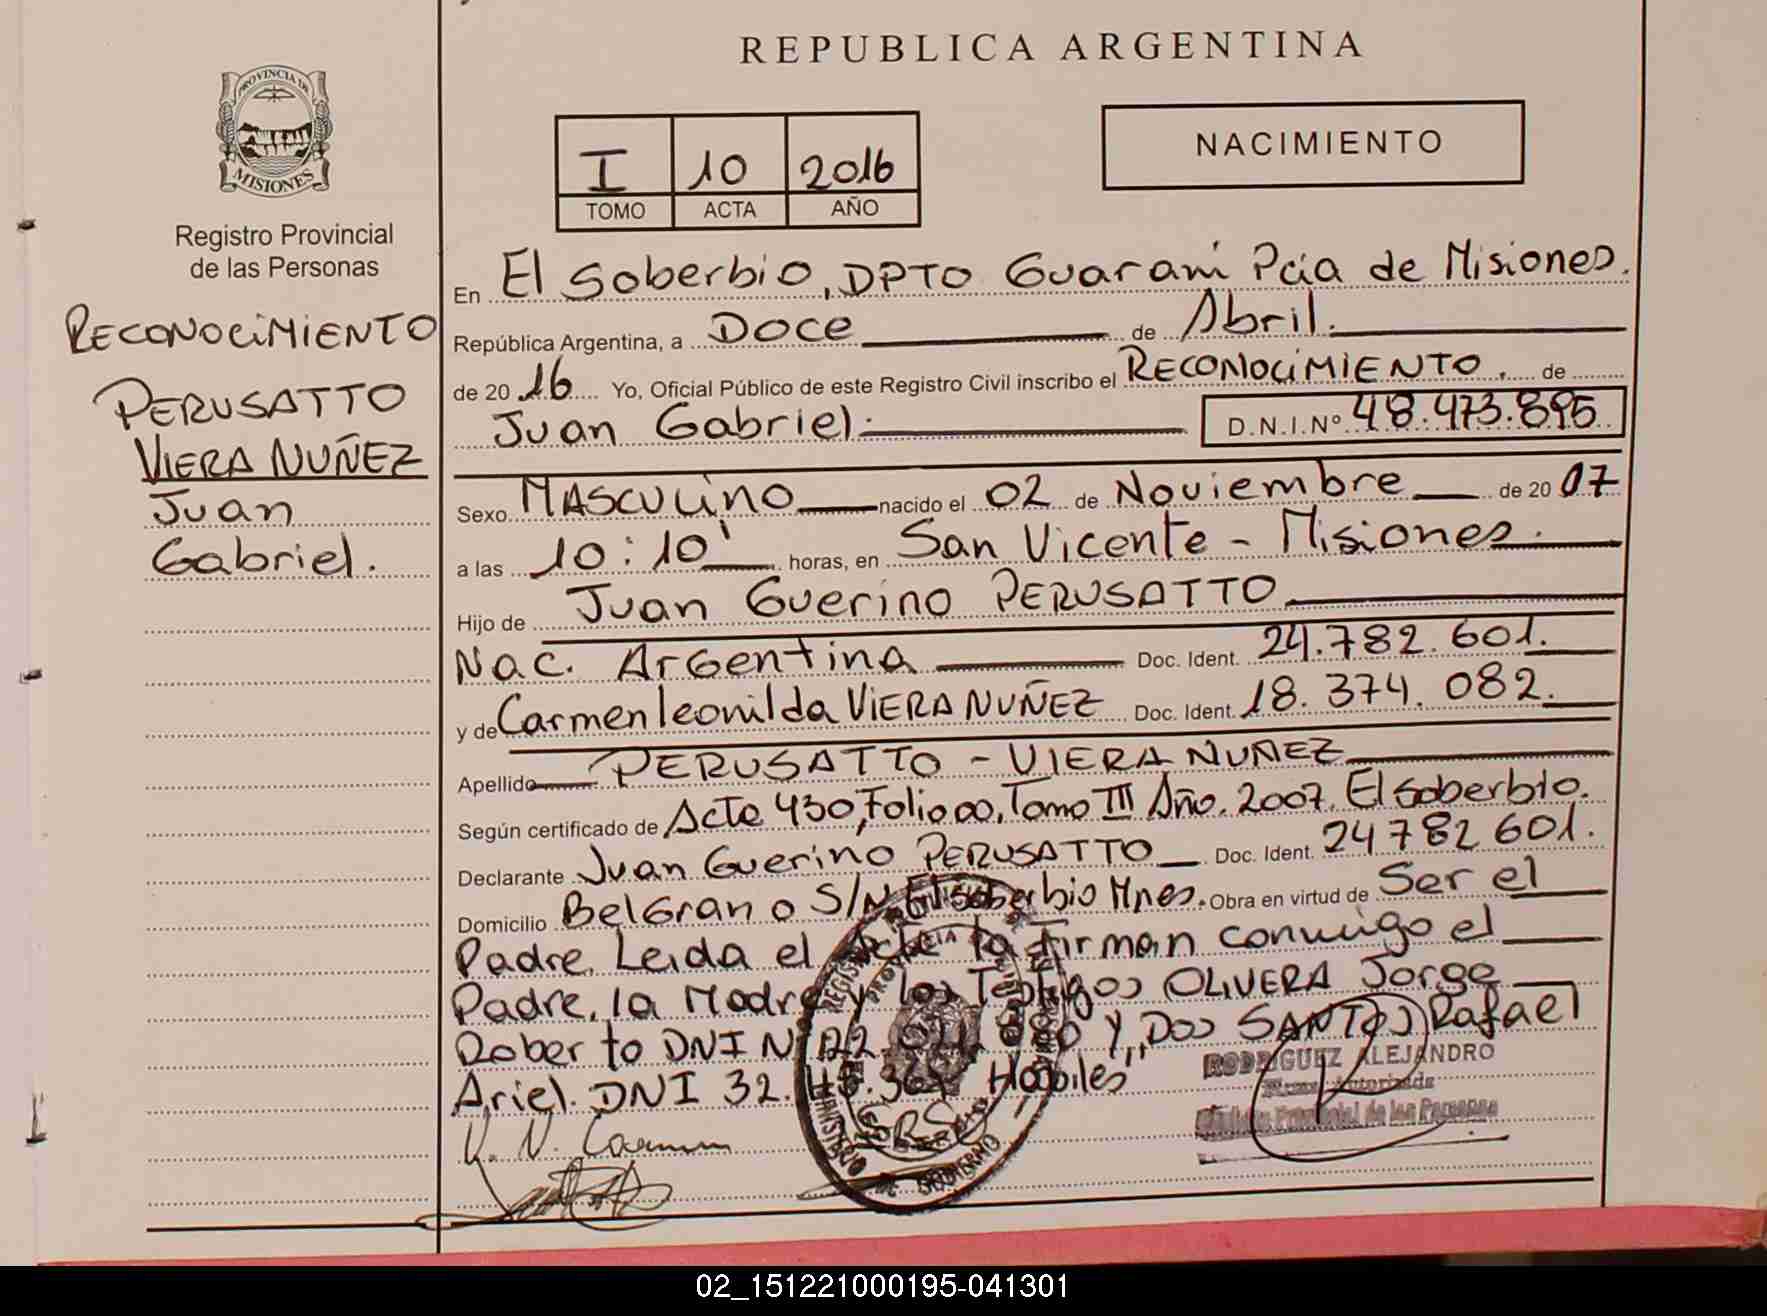 REPUBLICA ARGENTINA
PROVINCIA DE
MISIONES
Registro Provincial
de las Personas
RECONOCIMIENTO
PERUSATTO
VIERA NUÑEZ
Juan
Gabriel.
I 10 2016
TOMO ACTA AÑO
NACIMIENTO
En El Soberbio, DPTO Guaraní Pcia de Misiones.
República Argentina, a Doce de Abril.
de 20 16 Yo, Oficial Público de este Registro Civil inscribo el RECONOCIMIENTO. de
Juan Gabriel. D.N.I.Nº 48.473.895
Sexo MASCULINO nacido el 02 de Noviembre de 20 07
a las 10:10' horas, en San Vicente - Misiones.
Hijo de Juan Guerino PERUSATTO
Nac. Argentina Doc. Ident. 24.782.601.
y de Carmen leonilda VIERA NUÑEZ Doc. Ident. 18.374.082.
Apellido PERUSATTO - VIERA NUÑEZ
Según certificado de Acta 430, Folio 00, Tomo III Año. 2007. El Soberbio.
Declarante Juan Guerino PERUSATTO Doc. Ident. 24782601.
Domicilio Belgrano S/N El Soberbio Mnes. Obra en virtud de Ser el
Padre. Leida el acta la firman conmigo el
Padre, la Madre y los Testigos OLIVERA Jorge
Roberto DNI N Y, DOS SANTOS Rafael
Ariel. DNI 32. "Habiles"
RODRIGUEZ ALEJANDRO
Firma Autorizada
Registro Provincial de las Personas
02_151221000195-041301